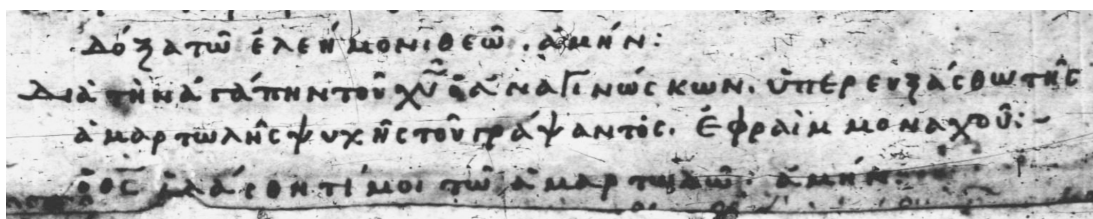 δόξα τῶ ἐλεήμονι θεῶ. ἀμήν:
Διὰ τὴν ἀγάπην τοῦ χῦ ὁ ἀναγινώσκων. ὑπερευξάσθω τῆς
ἁμαρτωλῆς ψυχῆς τοῦ γράψαντος. Ἐφραὶμ μοναχοῦ:~
ὁ θς ἱλάσθητί μοι τῶ ἁμαρτωλῶ. ἀμήν